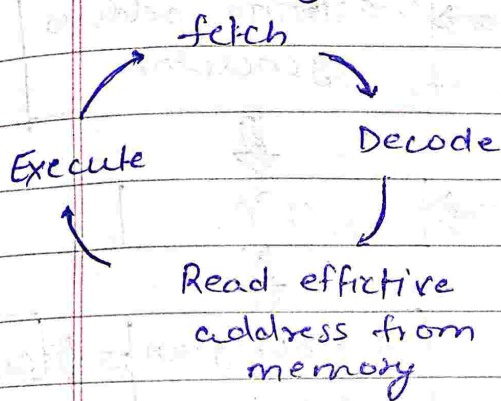 fetch
Decode
Execute
Read effictive
address from
memory